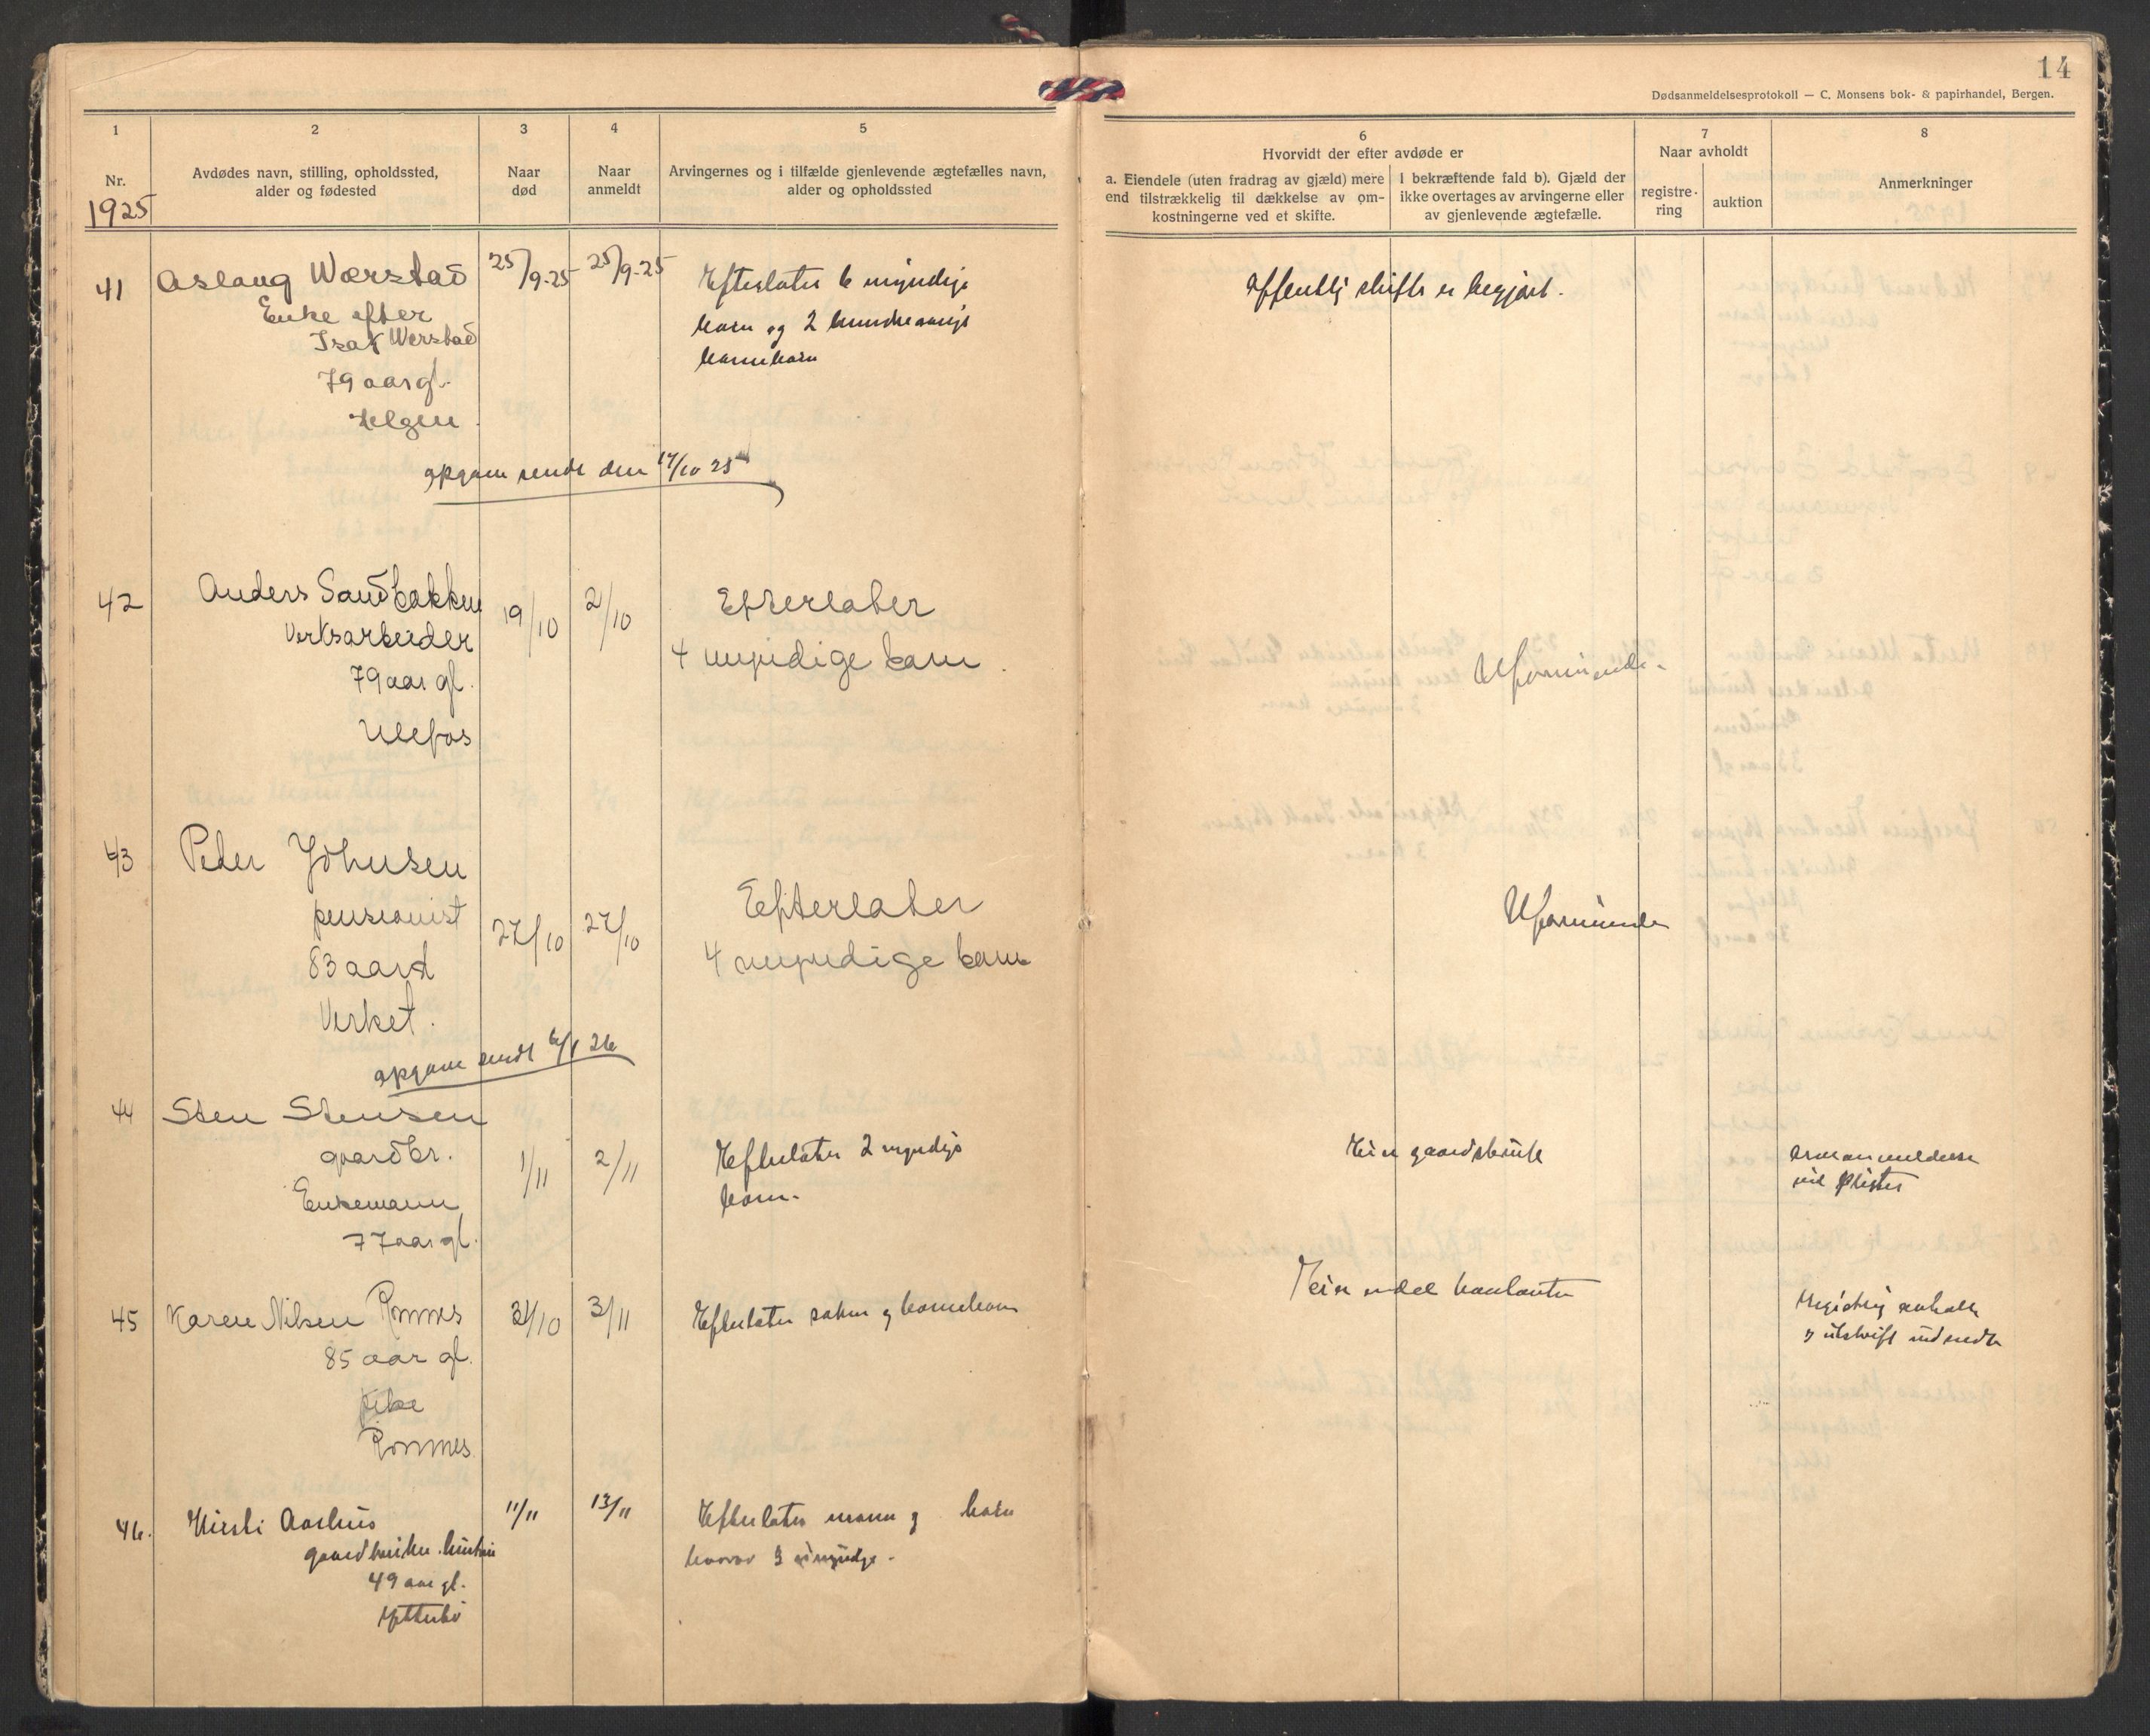 14
Dødsanmeldelsesprotokoll — C. Monsens bok- & papirhandel, Bergen.
1
Nr.
1925
2
Avdødes navn, stilling, opholdssted,
alder og fødested
3
Naar
død
4
Naar
anmeldt
5
Arvingernes og i tilfælde gjenlevende ægtefælles navn,
alder og opholdssted
6
Hvorvidt der efter avdøde er
a. Eiendele (uten fradrag av gjæld) mere
end tilstrækkelig til dækkelse av om-
kostningerne ved et skifte.
I bekræftende fald b). Gjæld der
ikke overtages av arvingerne eller
av gjenlevende ægtefælle.
7
Naar avholdt
registre-
ring
auktion
8
Anmerkninger
41 Aslaug Wærstad 25/9-25 25/9-25 Efterlater 6 myndige Offentlig skifte er begjært.
Enke efter
Isak Werstad barn og 2
79 aar gl. barnebarn
Helgen
opgave sendt den 17/10 25
42 Anders Sandbakken 19/10 2/10 Efterlater
Verksarbeider 4 myndige barn. Uformuende
79 aar gl.
Ulefos
43 Peder Johnsen
pensionist 27/10 27/10 Efterlater Uformuende
83 aar 4 myndige barn
Verket.
opgave sendt 26
44 Sten Stensen
gaardbr. 1/11 2/11 Efterlater 2 myndige
Enkemann barn.
77 aar gl.
45 Karen Nilsen Romnes 31/10 3/11 Efterlater barnebarn
85 aar gl.
Romnes
46. Kirsti Aarhus 11/11 13/11 Efterlater mann og barn
49 aar gl. hvorav